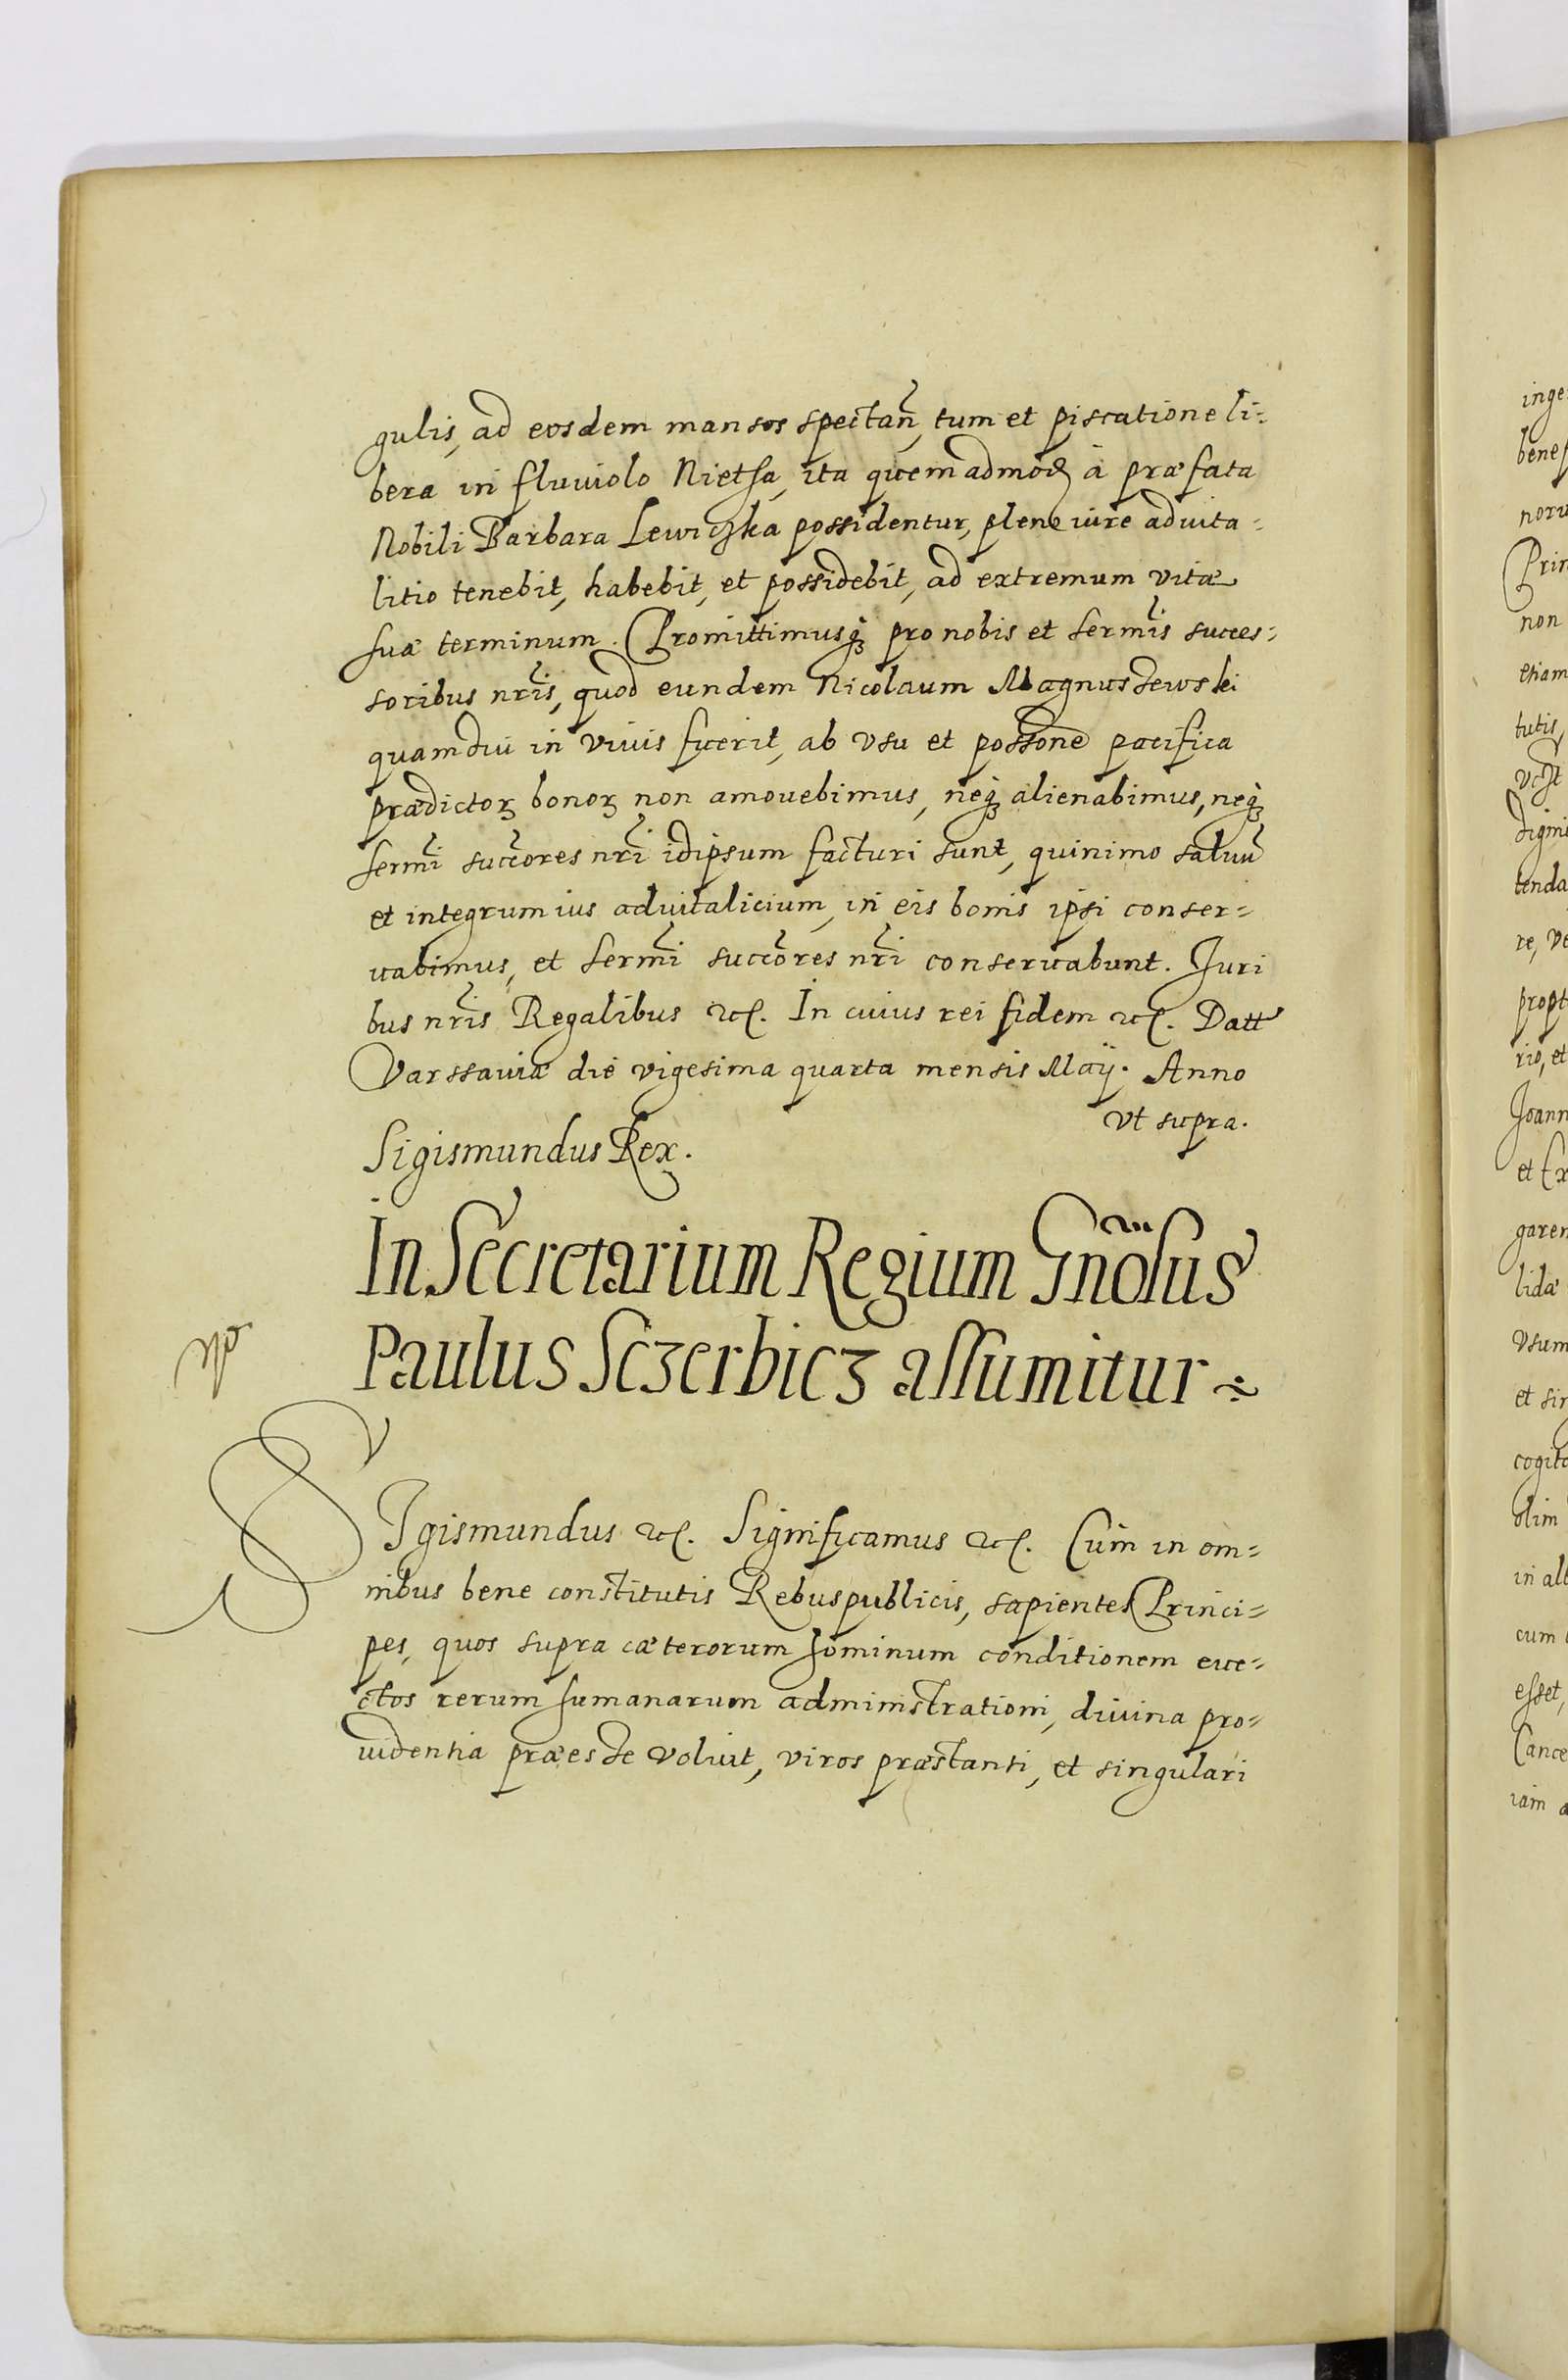 gulis, ad eosdem mansos spectañ, tum et piscatione li=
bera in fluuiolo Nietha, ita quemadmod à præfata
Nobili Barbara Lewiczka possidentur, plene iure aduita=
litio tenebit, habebit, et possidebit, ad extremum vitæ
suæ terminum. Promittimusq́ꝫ pro nobis et sermis̃ succes=
soribus nris̃, quod eundem Nicolaum Magnuszewski
quamdiu in viuis fuerit, ab vsu et possone pacifica
prædictoꝝ bonoꝝ non amouebimus, neq́ꝫ alienabimus, neq́ꝫ
sermĩ succores nrĩ idipsum facturi sunt, quinimo saluũ
et integrum ius aduitalicium, in eis bonis ipsi conser=
uabimus, et sermĩ succores nrĩ conseruabunt. Juri
bus nris̃ Regalibus etc. In cuius rei fidem etc. Datt
Varssauiæ die vigesima quarta mensis Maÿ. Anno
vt supra.
Sigismundus Rex.
In Secretarium Regium Gñosus
Paulus Sczerbicz assumitur
SIgismundus etc. Significamus etc. Cum in om=
nibus bene constitutis Rebuspublicis, sapientes Princi=
pes, quos supra cæterorum hominum conditionem eue=
ctos rerum humanarum administrationi, diuina pro=
uidentia præesse voluit, viros præstanti, et singulari
inge
bene
noru
Prin
non
etiam
tutis,
digni
tenda
re, ve
propt
rio, et
Joann
et Ex
garen
lidæ
vsum
et sin
cogita
olim
in alt
cum
esset,
Cance
iam a